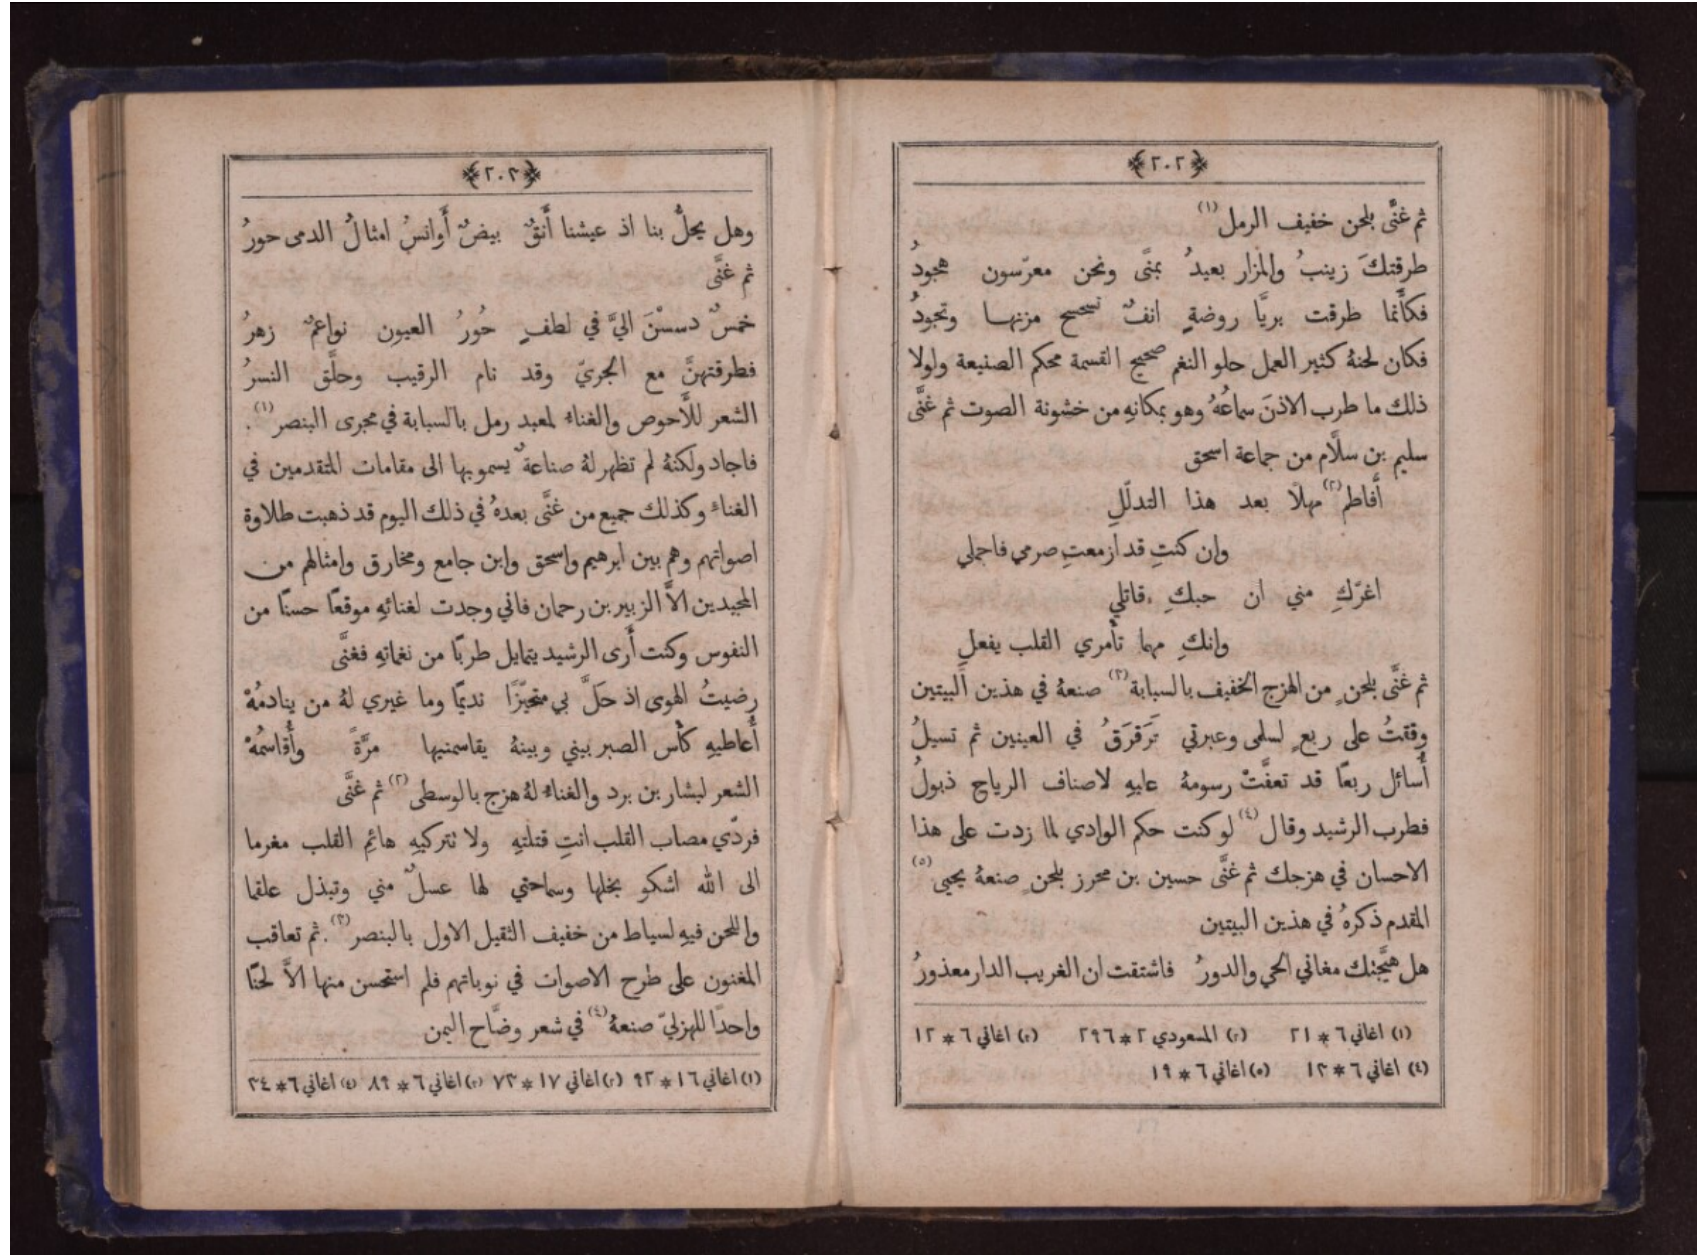 ﴿٢٠٢﴾
ثم غنَّى بلحن خفيف الرمل (١)
طرقتكَ زينبُ والمزار بعيدُ بمنًى ونحن معرّسون هجودُ
فكأَنما طرقت بريَّا روضةٍ انفٌ تسحسح مزنها وتجودُ
فكان لحنهُ كثير العمل حلو النغم صحيح القسمة محكم الصنيعة ولولا
ذلك ما طرب الاذنَ سماعُهُ وهو بمكانهِ من خشونة الصوت ثم غنَّى
سليم بن سلَّام من جماعة اسحق
أَفاطم (٢) مهلًا بعد هذا التدلّلِ
وان كنتِ قد ازمعتِ صرمي فاجملي
اغرّكِ مني ان حبكِ قاتلي
وانكِ مهما تأمري القلب يفعلِ
ثم غنَّى بلحنٍ من الهزج الخفيف بالسبابة (٣) صنعهُ في هذين البيتين
وقفتُ على ربعٍ لسلمى وعبرتي تَرَقرَقُ في العينين ثم تسيلُ
أُسائل ربعًا قد تعفَّتْ رسومهُ عليهِ لاصناف الرياح ذبولُ
فطرب الرشيد وقال (٤) لو كنت حكم الوادي لما زدت على هذا
الاحسان في هزجك ثم غنَّى حسين بن محرز بلحنٍ صنعهُ يحيى (٥)
المقدم ذكرهُ في هذين البيتين
هل هيَّجتك مغاني الحي والدورُ فاشتقت ان الغريب الدار معذورُ
(١) اغاني ٦ * ٢١ (٢) المسعودي ٢ * ٢٩٦ (٣) اغاني ٦ * ١٢
(٤) اغاني ٦ * ١٢ (٥) اغاني ٦ * ١٩
﴿٢٠٣﴾
وهل يحلُّ بنا اذ عيشنا أَنقٌ بيضٌ أَوانسُ امثالُ الدمى حورُ
ثم غنَّى
خمسٌ دسسْنَ اليَّ في لطفٍ حُورُ العيون نواعمٌ زهرُ
فطرقتهنَّ مع الجريّ وقد نام الرقيب وحلَّق النسرُ
الشعر للأَحوص والغناء لمعبد رمل بالسبابة في مجرى البنصر (١) .
فاجاد ولكنهُ لم تظهر لهُ صناعةٌ يسمو بها الى مقامات المتقدمين في
الغناء وكذلك جميع من غنَّى بعدهُ في ذلك اليوم قد ذهبت طلاوة
اصواتهم وهم بين ابرهيم واسحق وابن جامع ومخارق وامثالهم من
المجيدين الاَّ الزبير بن رحمان فاني وجدت لغنائهِ موقعًا حسنًا من
النفوس وكنت أَرى الرشيد يتمايل طربًا من نغماتهِ فغنَّى
رضيتُ الهوى اذ حَلَّ بي متحيّزًا نديمًا وما غيري لهُ من ينادمُهْ
أُعاطيهِ كأْس الصبر بيني وبينهُ يقاسمنيها مرَّةً وأُقاسمُهْ
الشعر لبشار بن برد والغناء لهُ هزج بالوسطى (٢) ثم غنَّى
فردّي مصاب القلب انتِ قتلتهِ ولا تتركيهِ هائم القلب مغرما
الى الله اشكو بخلها وسماحتي لها عسلٌ مني وتبذل علقما
واللحن فيهِ لسياط من خفيف الثقيل الاول بالبنصر (٣) . ثم تعاقب
المغنون على طرح الاصوات في نوباتهم فلم استحسن منها الاَّ لحنًا
واحدًا للهزليّ صنعهُ (٤) في شعر وضَّاح اليمن
(١) اغاني ١٦ * ٩٢ (٢) اغاني ١٧ * ٧٣ (٣) اغاني ٦ * ٨٩ (٤) اغاني ٦ * ٣٤